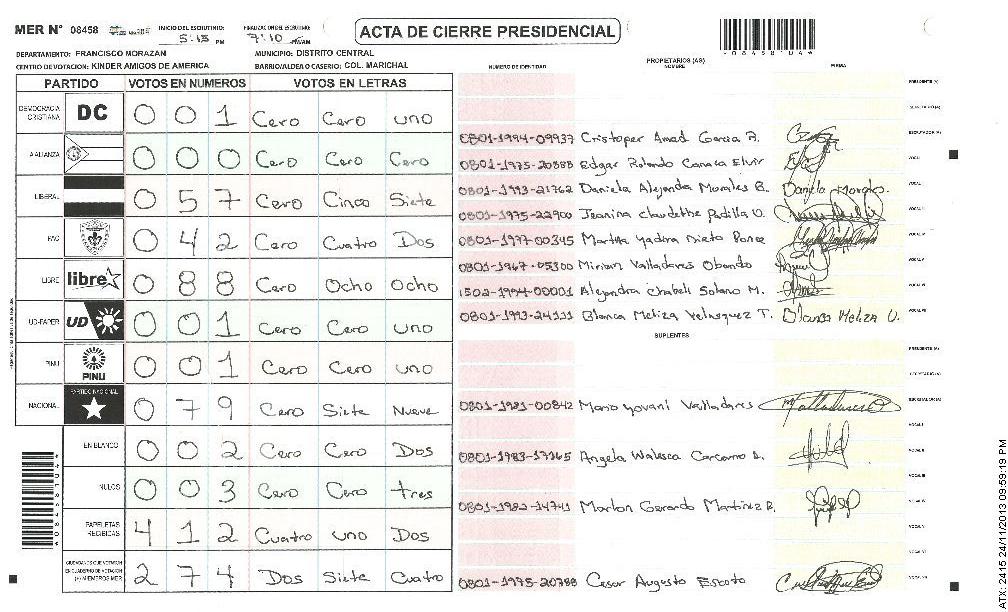 MER N° 08458 INICIO DEL ESCRUTINIO: 5:15 PM FINALIZACION DEL ESCRUTINIO: 7:10 PM/AM ACTA DE CIERRE PRESIDENCIAL
DEPARTAMENTO: FRANCISCO MORAZAN MUNICIPIO: DISTRITO CENTRAL
CENTRO DE VOTACION: KINDER AMIGOS DE AMERICA BARRIO/ALDEA O CASERIO: COL. MARICHAL
PARTIDO VOTOS EN NUMEROS VOTOS EN LETRAS
DEMOCRACIA CRISTIANA DC 0 0 1 Cero Cero uno
ALIANZA 0 0 0 Cero Cero Cero
LIBERAL 0 5 7 Cero Cinco Siete
PAC 0 4 2 Cero Cuatro Dos
LIBRE libre 0 8 8 Cero Ocho Ocho
UD-FAPER UD 0 0 1 Cero Cero uno
PINU PINU 0 0 1 Cero Cero uno
NACIONAL PARTIDO NACIONAL 0 7 9 Cero Siete Nueve
EN BLANCO 0 0 2 Cero Cero Dos
NULOS 0 0 3 Cero Cero tres
PAPELETAS RECIBIDAS 4 1 2 Cuatro uno Dos
CIUDADANOS QUE VOTARON EN CUADERNO DE VOTACION (+) MIEMBROS MER 2 7 4 Dos Siete Cuatro
NUMERO DE IDENTIDAD PROPIETARIOS (AS) NOMBRE FIRMA
PRESIDENTE (A)
SECRETARIO (A)
0801-1994-09937 Cristoper Amad Garcia A. ESCRUTADOR (A)
0801-1975-20888 Edgar Rolando Canaca Elvir VOCAL I
0801-1993-21762 Daniela Alejandra Morales B. Daniela Morales.
0801-1975-22900 Jeanina claudethe Padilla U.
0801-1977-00345 Martha Yadira Nieto Ponce
0801-1967-05300 Mirian Valladares Obando
1502-1994-00001 Alejandra Chabeli Solano M.
0801-1993-24111 Blanca Meliza Velasquez T. Blanca Meliza V.
SUPLENTES
PRESIDENTE (A)
SECRETARIO (A)
0801-1981-00842 Mario Yovani Valladares ESCRUTADOR (A)
0801-1983-17165 Angela Waleska Carcamo A.
0801-1982-14741 Marlon Gerardo Martinez R.
0801-1975-20788 Cesar Augusto Escoto
ATX: 2415 24/11/2013 09:59:19 PM